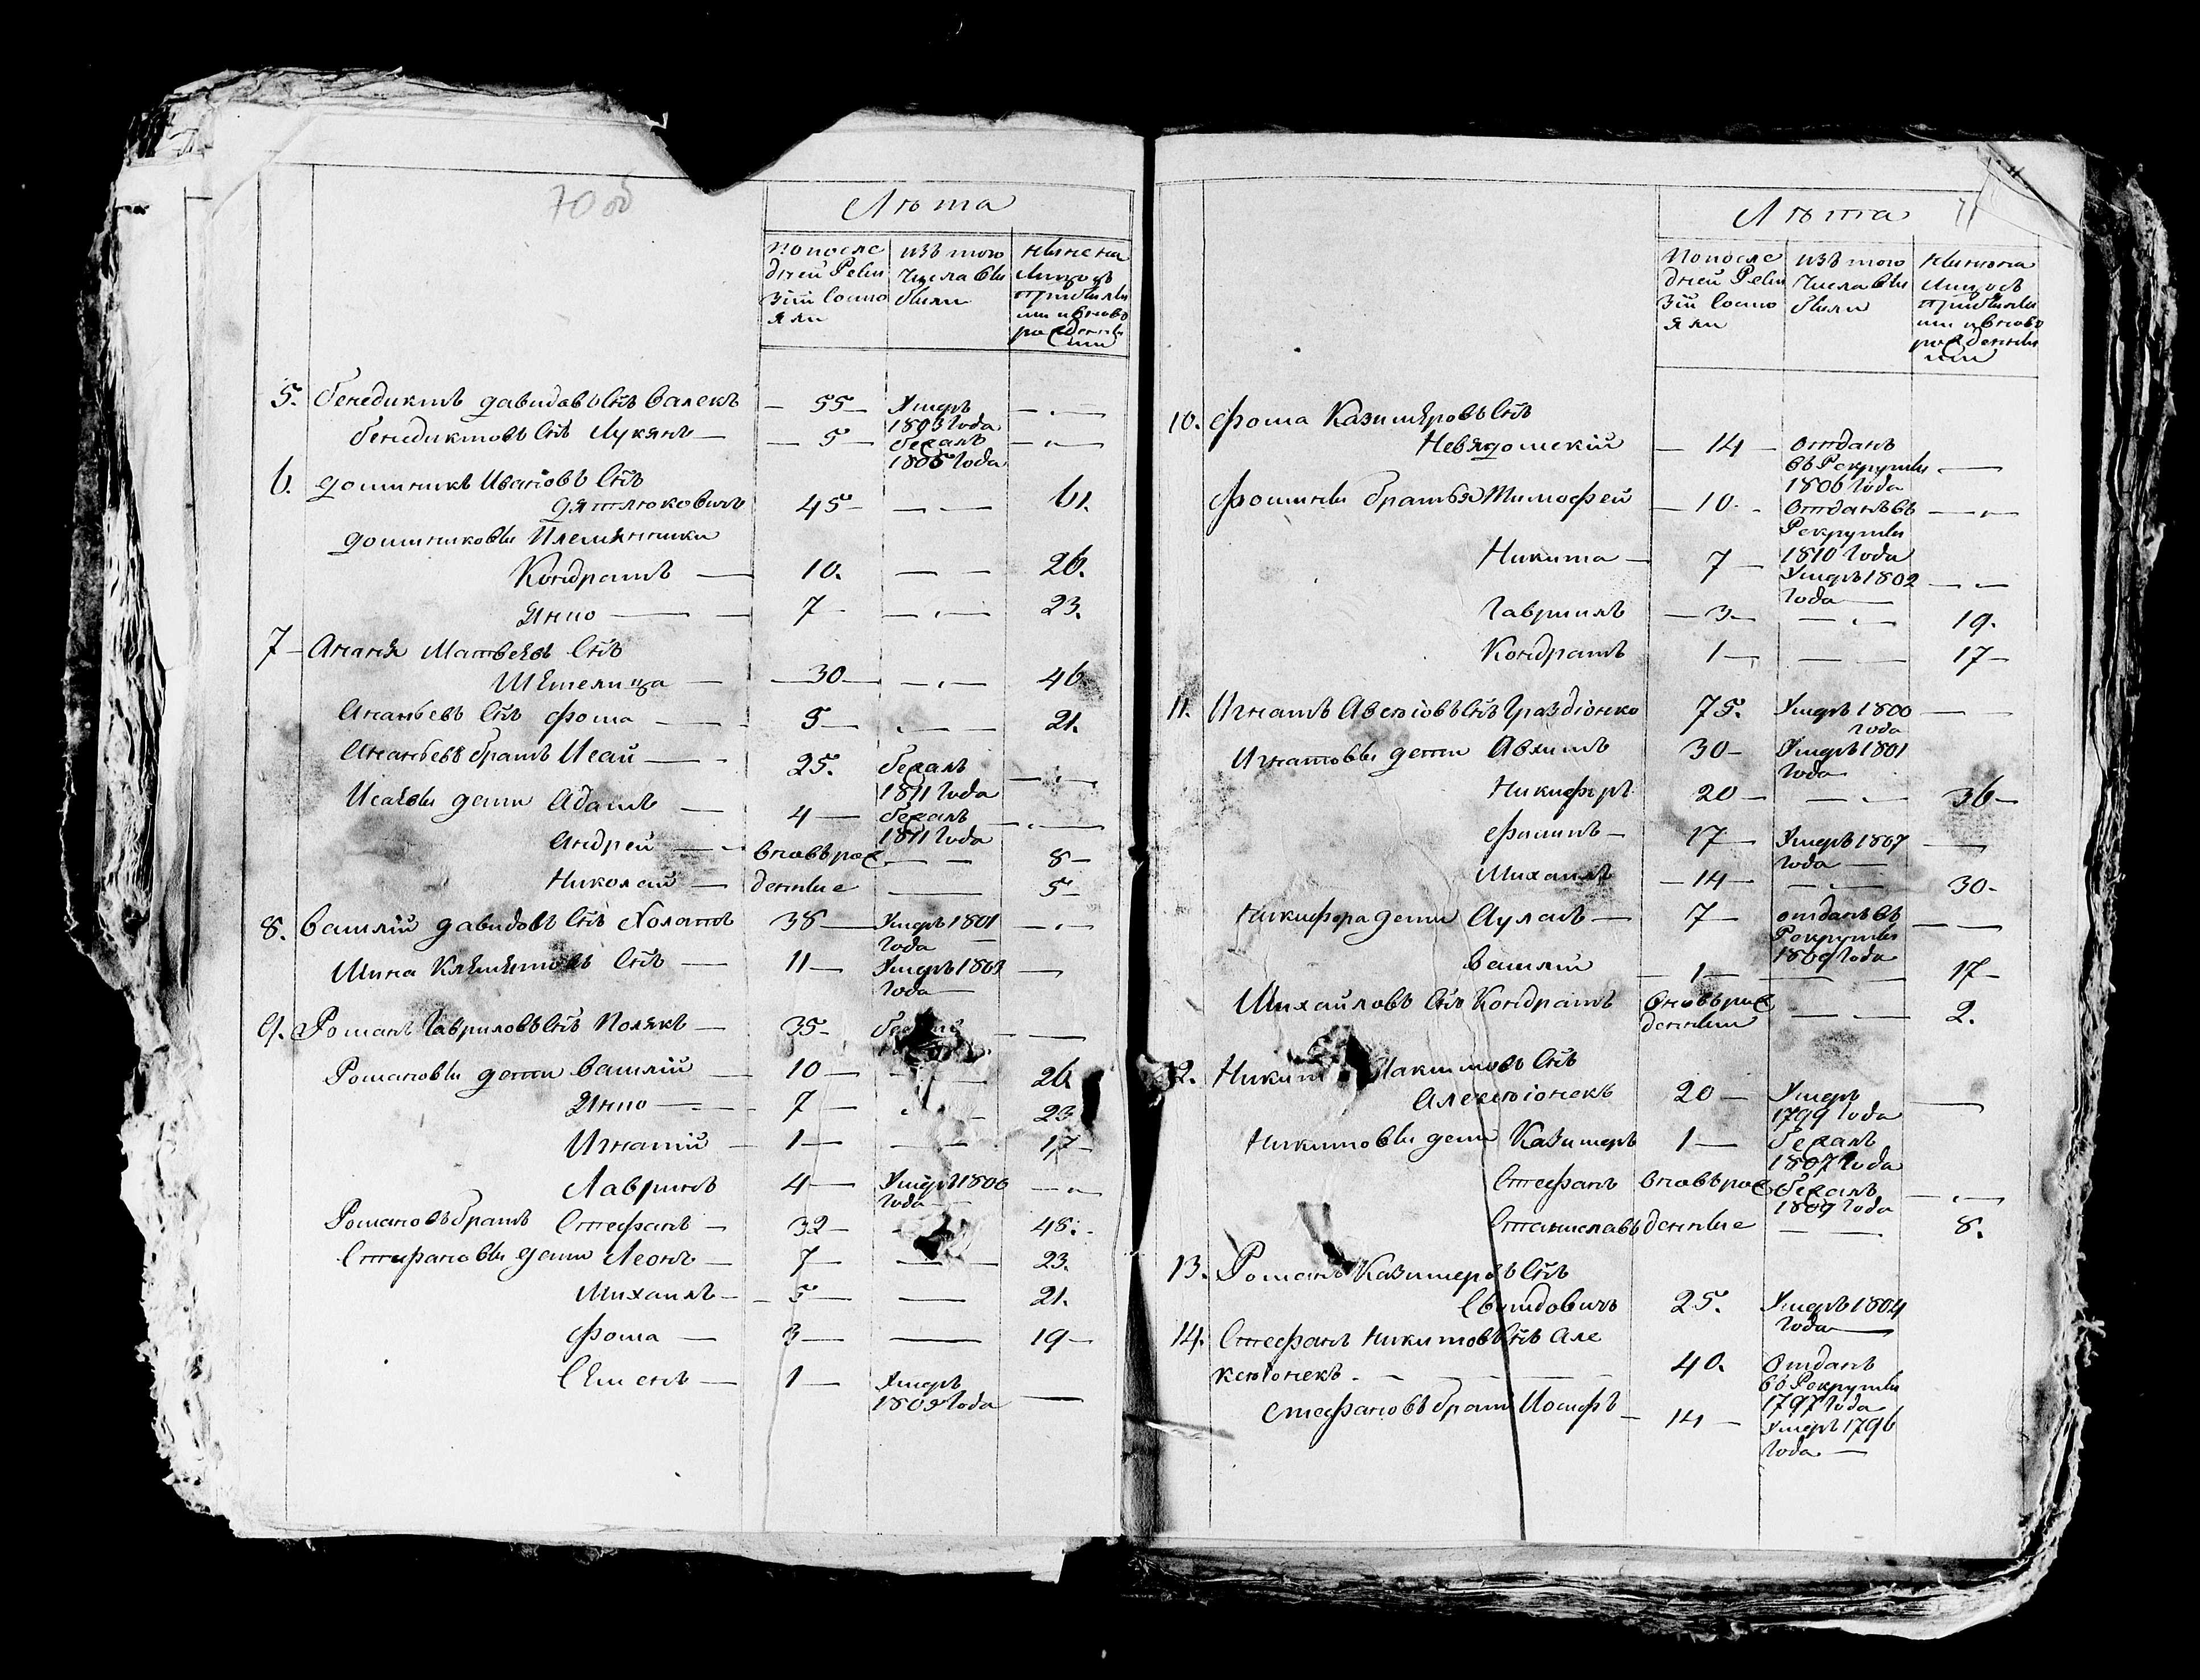 70 об
Лѣта
по после
дней Реви
зіи состо
яли
изъ того
числа вы
были
ныне на
лицо съ
прибылы
ми и вново
рожденны
ми
5. Бенедиктъ давидавъ Снъ Валекъ — 55 — Умеръ
1803 Года
Бенедиктовъ Снъ Лукянъ — 5 — бежалъ
1805 Года
6. доминикъ Ивановъ Снъ
дятлюковичъ 45 — — 61.
доминиковы Племянники
Кондратъ — 10. — — 26.
Янно — 7 — — 23.
7 — Ананя Матвеевъ Снъ
Шемелица — 30 — — 46
Ананьевъ Снъ фома — 5 — — 21.
Ананьевъ братъ Исай — 25. бежалъ
1811 Года
Исаевы дети Адамъ — 4 — бежалъ
1811 Года
Андрей — вновърож — — 8 —
Николай — денные — 5 —
8. Василій давидовъ Снъ Холотъ 38 — Умеръ 1801
Года
Мина Клеметовъ Снъ — 11 — Умеръ 1802
Года
9. Романъ Гавриловъ Снъ Полякъ — 35 —
Романовы дети Василій — 10 — — 26
Янно — 7 — — 23
Игнатій — 1 — — 17
Лавринъ 4 — Умеръ 1806
Года
Романовъ братъ Стефанъ — 32 — — 48.
Стефановы дети Леонъ — 7 — — 23.
Михаилъ — 5 — — 21.
фома — 3 — — 19 —
Семенъ — 1 — Умеръ
1802 Года —
71
Лѣта
по после
дней Реви
зіи состо
яли
изъ того
числа вы
были
ныне на
лицо съ
прибылы
ми и вново
рожденны
ми
10. фома Казимеровъ Снъ
Невядомскій — 14 — отданъ
въ Рекруты —
1806 Года
фомины братья Тимофей — 10. — Отданъ въ
Рекруты
1810 Года
Никита — 7 — Умеръ 1802
Года —
Гаврилъ — 3 — — 19.
Кондратъ 1 — — 17 —
11. Игнатъ Авсюговъ Снъ Граздіонко 75. Умеръ 1800
Года
Игнатовы дети Авхимъ 30 — Умеръ 1801
Года
Никифоръ 20 — — 36 —
филипъ — 17 — Умеръ 1807
Года —
Михаилъ — 14 — — 30 —
Никифора дети Аулалъ — 7 — отданъ въ
Рекруты
1809 Года
Василій — 1 — — 17 —
Михаиловъ Снъ Кондратъ вновърож
денный — — 2.
12. Никит Макимовъ Снъ
Алексіонекъ 20 — Умеръ
1799 Года
Никитовы дети Казимеръ 1 — бежалъ
1807 Года
Стефанъ вновърож бежалъ
1809 Года
Станиславъ денные — — 8.
13. Романъ Казимеровъ Снъ
Свитдовичъ 25. Умеръ 1804
Года —
14. Стефанъ Никитовъ Снъ Але
ксюнекъ. — 40. Отданъ
въ Рекруты
1797 Года
Стефановъ братъ Иосифъ — 14 — Умеръ 1796
Года —